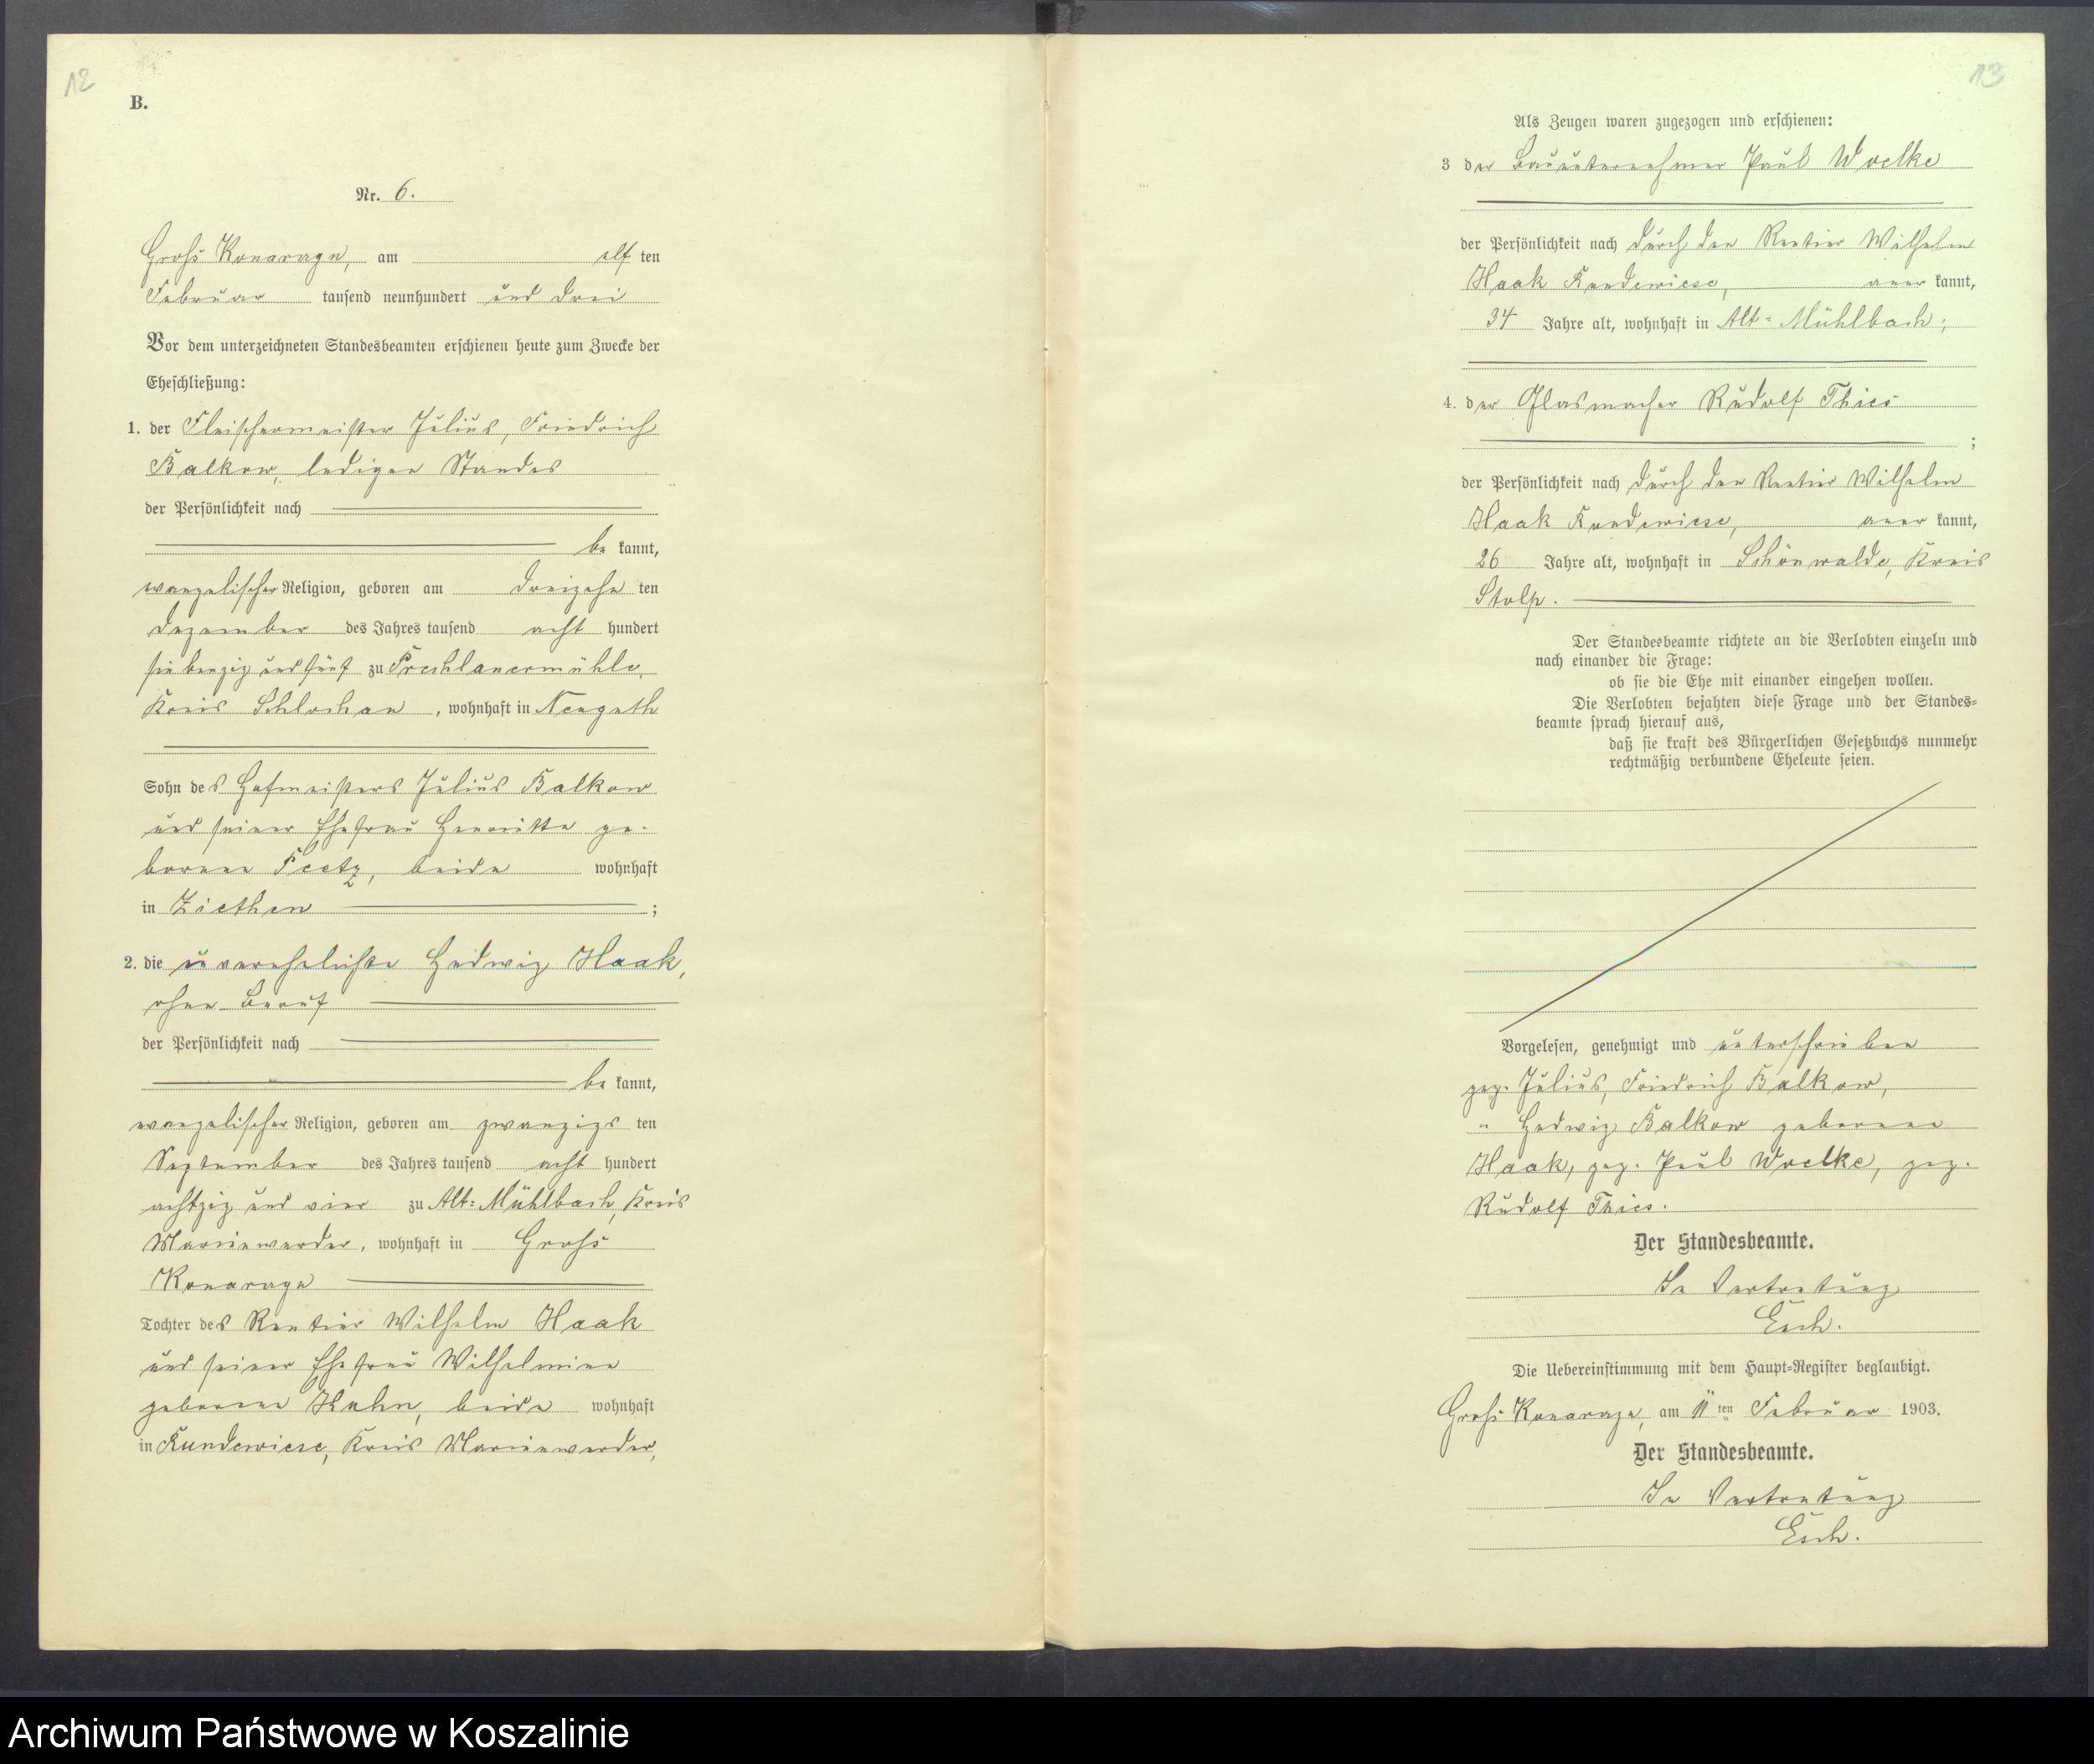 12
B.
Nr. 6.
Groß Konarage, am elf ten
Februar tausend neunhundert und drei
Vor dem unterzeichneten Standesbeamten erschienen heute zum Zwecke der
Eheschließung:
1. der Fleischermeister Julius, Friedrich
Balkow, ledigen Standes
der Persönlichkeit nach
be kannt,
evangelischer Religion, geboren am dreizehn ten
Dezember des Jahres tausend acht hundert
siebenzig und fünf zu
Kreis Schlochau, wohnhaft in Neuguth
Sohn des Hofmeisters Julius Balkow
und seiner Ehefrau Henriette ge-
borenen Peetz, beide wohnhaft
in Ziethen ;
2. die unverehelichte Hedwig Haak,
ohne Beruf
der Persönlichkeit nach
be kannt,
evangelischer Religion, geboren am zwanzigs ten
September des Jahres tausend acht hundert
achtzig und vier zu Alt-Mühlbach, Kreis
Marienwerder, wohnhaft in Groß
Konarage
Tochter des Rentier Wilhelm Haak
und seiner Ehefrau Wilhelmine
geborene beide wohnhaft
in Kundewiese, Kreis Marienwerder,
13
Als Zeugen waren zugezogen und erschienen:
3 der Bauunternehmer Paul Woelke
der Persönlichkeit nach durch den Rentier Wilhelm
Haak Kundewiese, aner kannt,
34 Jahre alt, wohnhaft in Alt-Mühlbach;
4. der Glasmacher Rudolf Thies
;
der Persönlichkeit nach durch den Rentier Wilhelm
Haak Kundewiese, aner kannt,
26 Jahre alt, wohnhaft in Schönwalde, Kreis
Stolp.
Der Standesbeamte richtete an die Verlobten einzeln und
nach einander die Frage:
ob sie die Ehe mit einander eingehen wollen.
Die Verlobten bejahten diese Frage und der Standes-
beamte sprach hierauf aus,
daß sie kraft des Bürgerlichen Gesetzbuchs nunmehr
rechtmäßig verbundene Eheleute seien.
Vorgelesen, genehmigt und unterschrieben
gez. Julius, Friedrich Balkow,
" Hedwig Balkow geborene
Haak, gez. Paul Woelke, gez.
Rudolf Thies.
Der Standesbeamte.
In Vertretung
Esch.
Die Uebereinstimmung mit dem Haupt-Register beglaubigt.
Groß Konarage, am 11ten Februar 1903.
Der Standesbeamte.
In Vertretung
Esch.
Archiwum Państwowe w Koszalinie